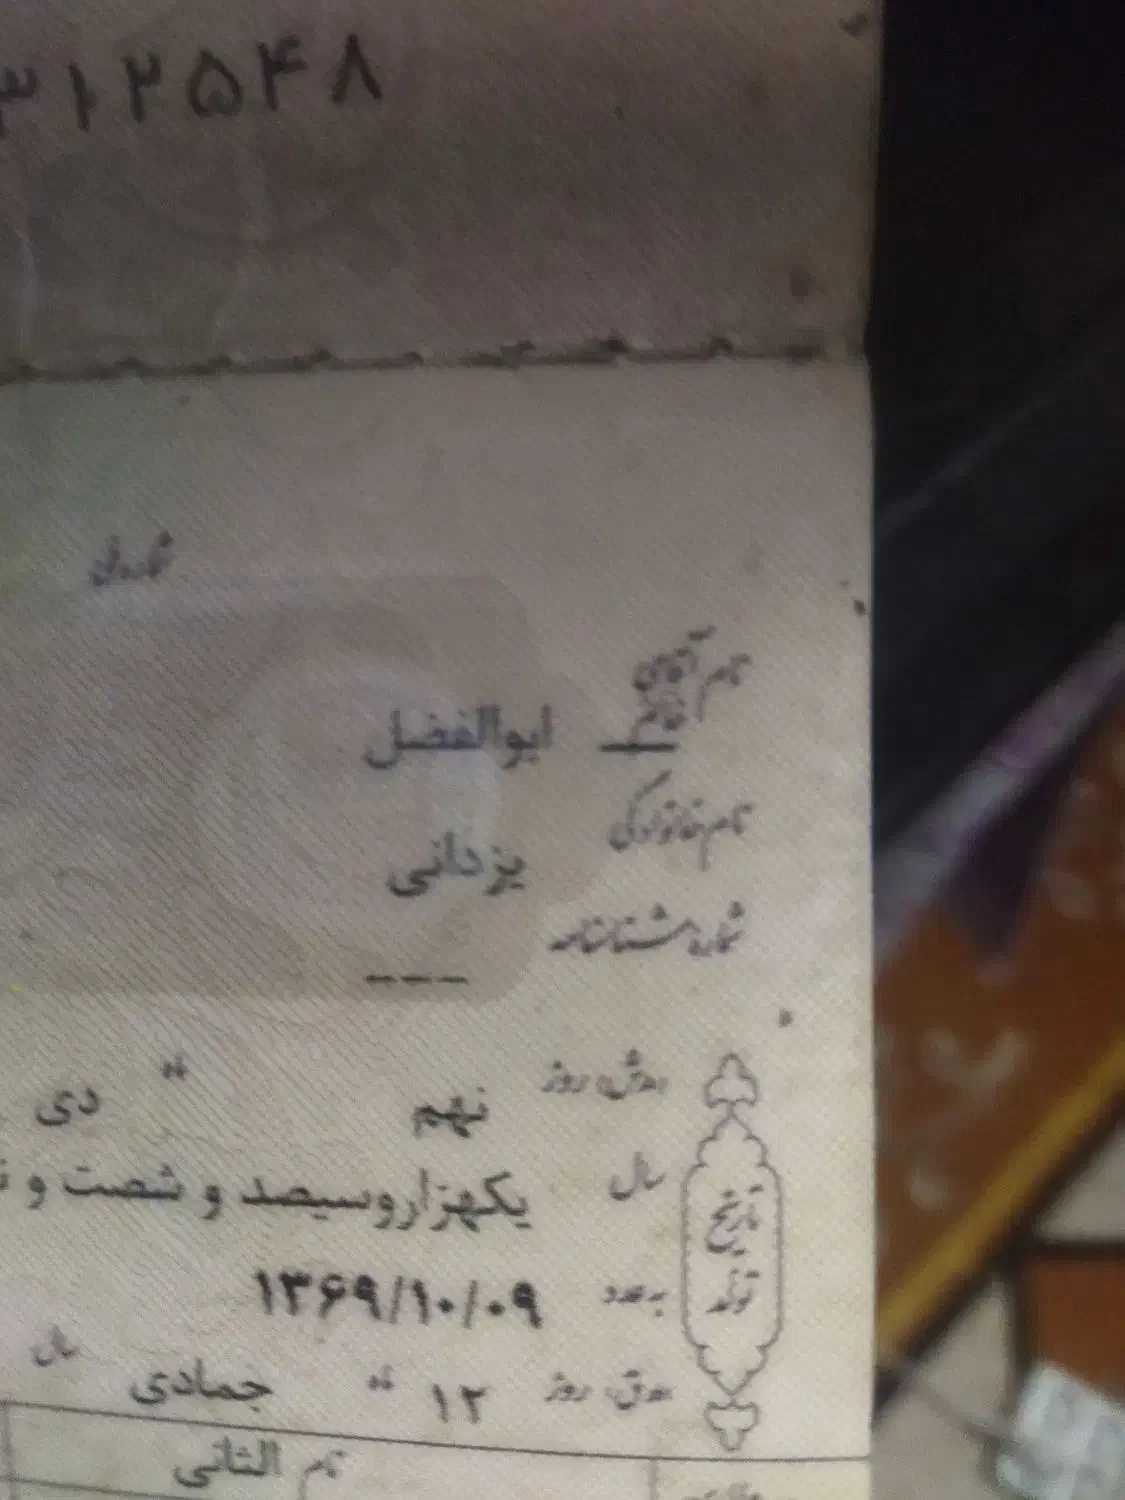 ۳۱۲۵۴۸
نام آقای
خانم ابوالفضل
نام خانوادگی
یزدانی
شماره شناسنامه
---
روز نهم ماه دی
سال یکهزاروسیصد و شصت و
تاریخ تولد
به عدد ۱۳۶۹/۱۰/۰۹
روز ۱۲ ماه جمادی سال
الثانی
نام